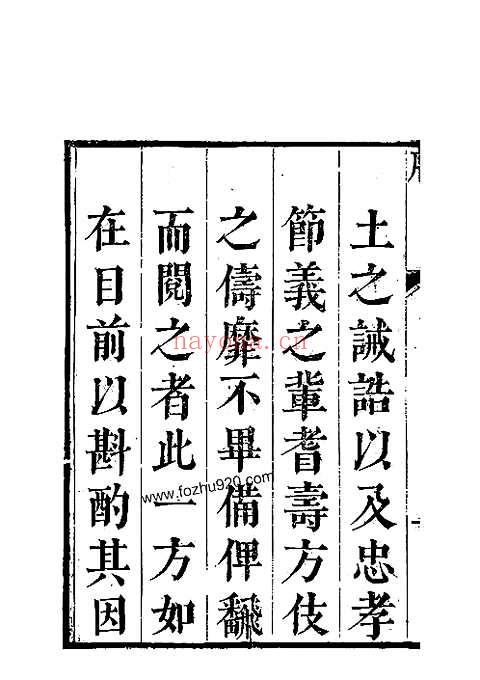 土之誡誥以及忠孝
節義之輩耆壽方伎
之儔靡不畢備俾翻
而閱之者此一方如
在目前以斟酌其因
hayona.cn
www.fozhu920.com